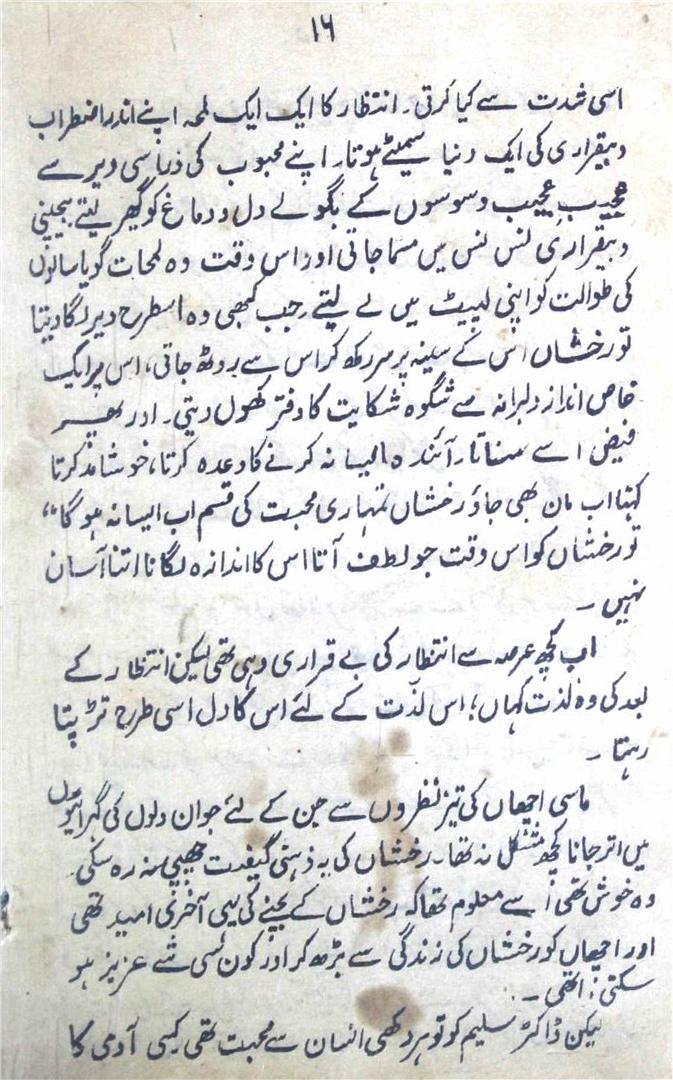 ۱۶
اسی شدت سے کیا کرتی۔ انتظار کا ایک ایک لمحہ اپنے اندر اضطراب
و بیقراری کی ایک دنیا سمیٹے ہوتا۔ اپنے محبوب کی ذرا سی دیر سے
عجیب عجیب وسوسوں کے بگولے دل و دماغ کو گھیر لیتے بیچینی
و بیقراری نس نس میں سما جاتی اور اس وقت وہ لمحات گویا سالوں
کی طوالت کو اپنی لپیٹ میں لے لیتے۔ جب کبھی وہ اسطرح دیر لگا دیتا
تو رخشاں اس کے سینہ پر سر رکھ کر اس سے روٹھ جاتی، اس پر ایک
خاص انداز دلبرانہ سے شکوہ شکایت کا دفتر کھول دیتی۔ اور پھر
فیض اسے مناتا۔ آئندہ ایسا نہ کرنے کا وعدہ کرتا، خوشامد کرتا
کہتا اب مان بھی جاؤ رخشاں تمہاری محبت کی قسم اب ایسا نہ ہو گا"
تو رخشاں کو اس وقت جو لطف آتا اس کا اندازہ لگانا اتنا آسان
نہیں۔
اب کچھ عرصہ سے انتظار کی بے قراری وہی تھی لیکن انتظار کے
بعد کی وہ لذت کہاں؛ اس لذّت کے لئے اس کا دل اسی طرح تڑپتا
رہتا۔
ماسی اچھاں کی تیز نظروں سے جن کے لئے جوان دلوں کی گہرائیوں
میں اتر جانا کچھ مشکل نہ تھا۔ رخشاں کی یہ ذہنی کیفیت چھپی نہ رہ سکی۔
وہ خوش تھی اُسے معلوم تھا کہ رخشاں کے بچنے کی یہی آخری امید تھی
اور اچھاں کو رخشاں کی زندگی سے بڑھ کر اور کون سی شے عزیز ہو
سکتی تھی۔
لیکن ڈاکٹر سلیم کو تو ہر دکھی انسان سے محبت تھی کسی آدمی کا